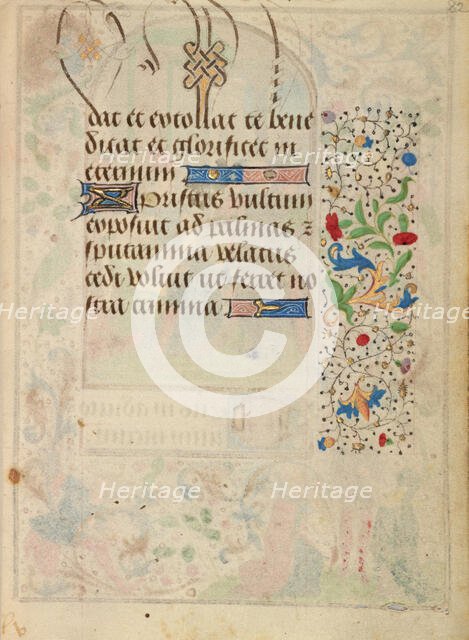 82
dat et extollat te bene
dicat et glorificet in
eternum
Xpristus vultum
exposuit ad palmas z
sputamina velatus
cedi voluit ut ferret no
stra crimina
Heritage Heritage Heritage
Heritage Heritage
Heritage
Heritage Heritage Heritage